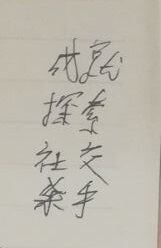 成就
探索
社交
杀手